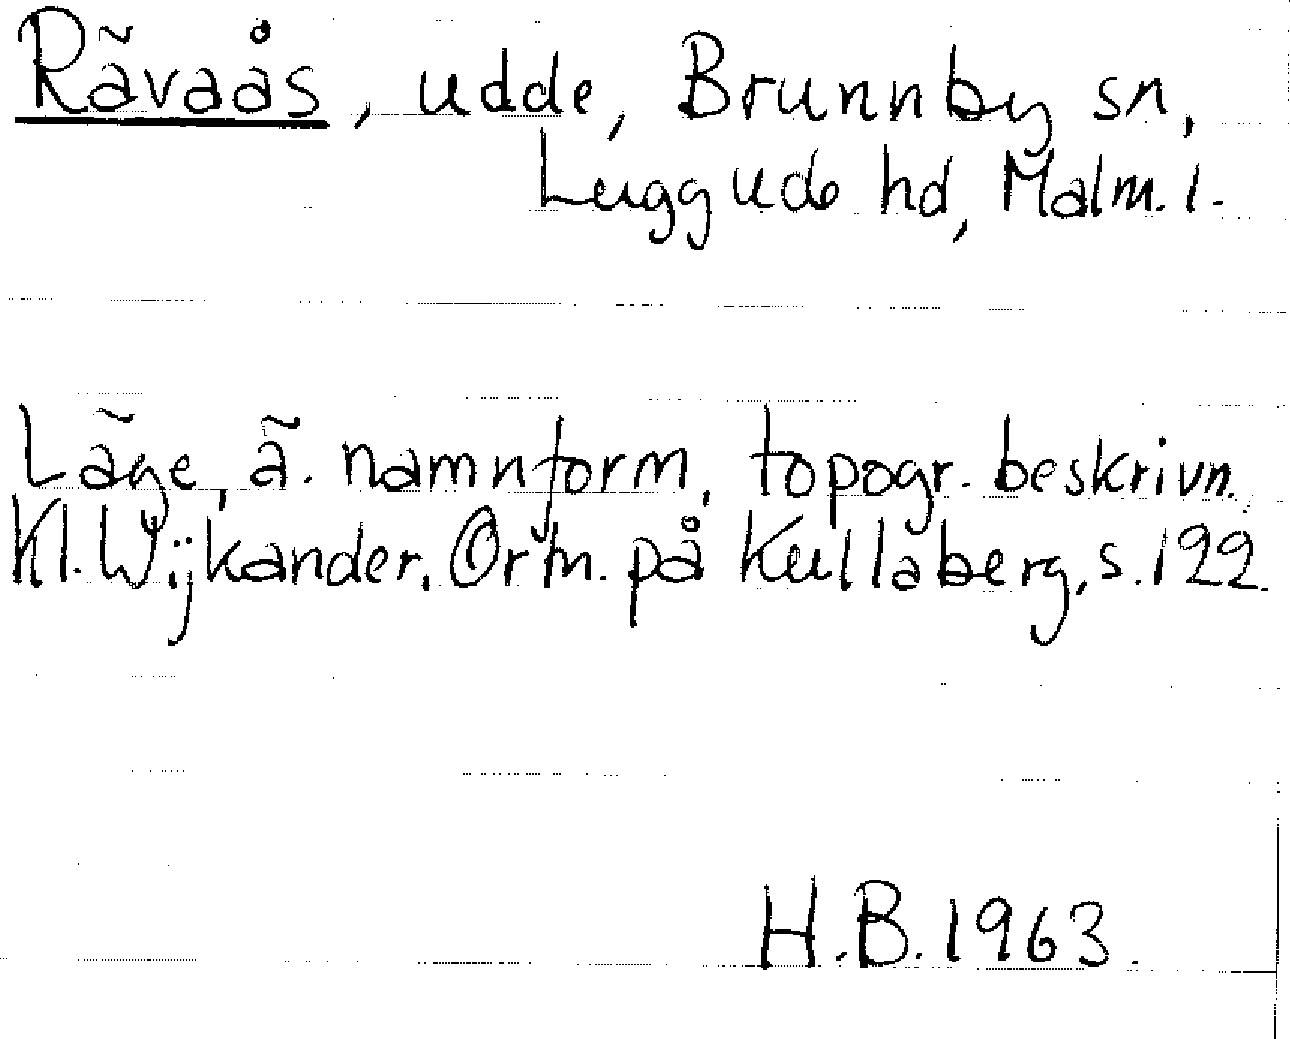 Rävaås, udde, Brunnby sn,
Luggude hd, Malm. l.
Läge, ä. namnform, topogr. beskrivn.
Kl. Wijkander, Ortn. på Kullaberg, s. 122.
H.B. 1963.